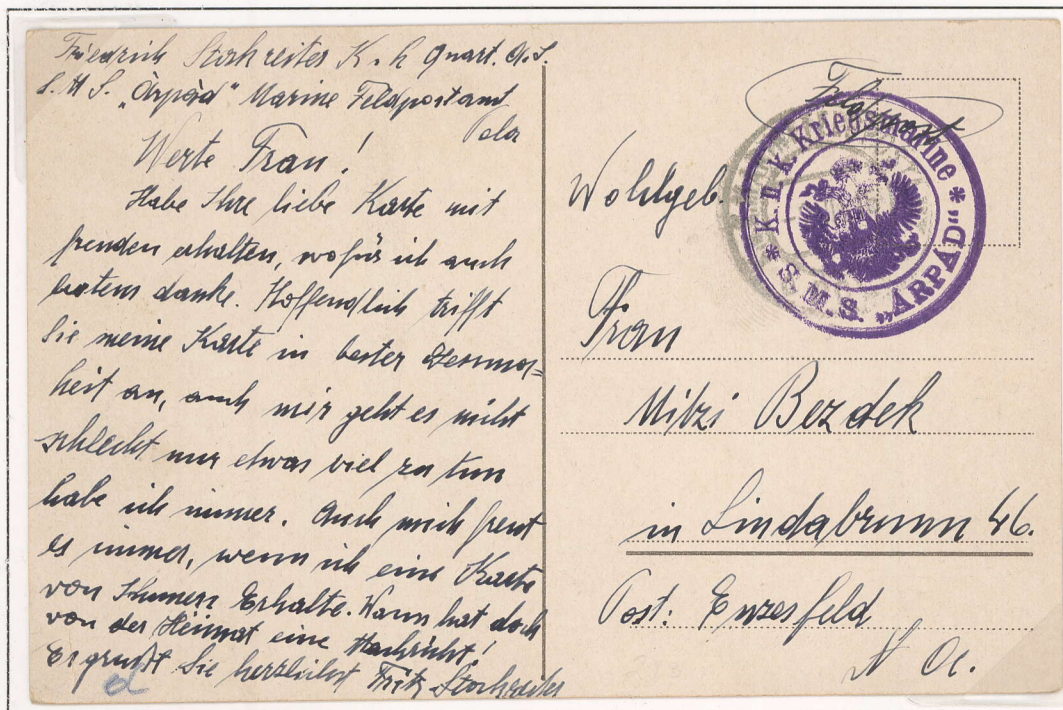 Friedrich Storkreiter K. k. Quart. M. S.
S. M. S. „Árpád“ Marine Feldpostamt
Pola
Werte Frau!
Habe Ihre liebe Karte mit
freuden erhalten, wofür ich auch
bestens danke. Hoffendlich trifft
Sie meine Karte in bester Gesund=
heit an, auch mir geht es nicht
schlecht nur etwas viel zu tun
habe ich immer. Auch mich freut
es immer, wenn ich eine Karte
von Ihnen Erhalte. Wann hat doch
von der Heimat eine Nachricht!
Es grüßt Sie herzlichst Fritz Storkreiter
Feldpost
K. u. K. Kriegsmarine
S. M. S. „ÁRPÁD“
Wohlgeb.
Frau
Mitzi Bezdek
in Lindabrunn 46.
Post: Enzesfeld
N. Oe.